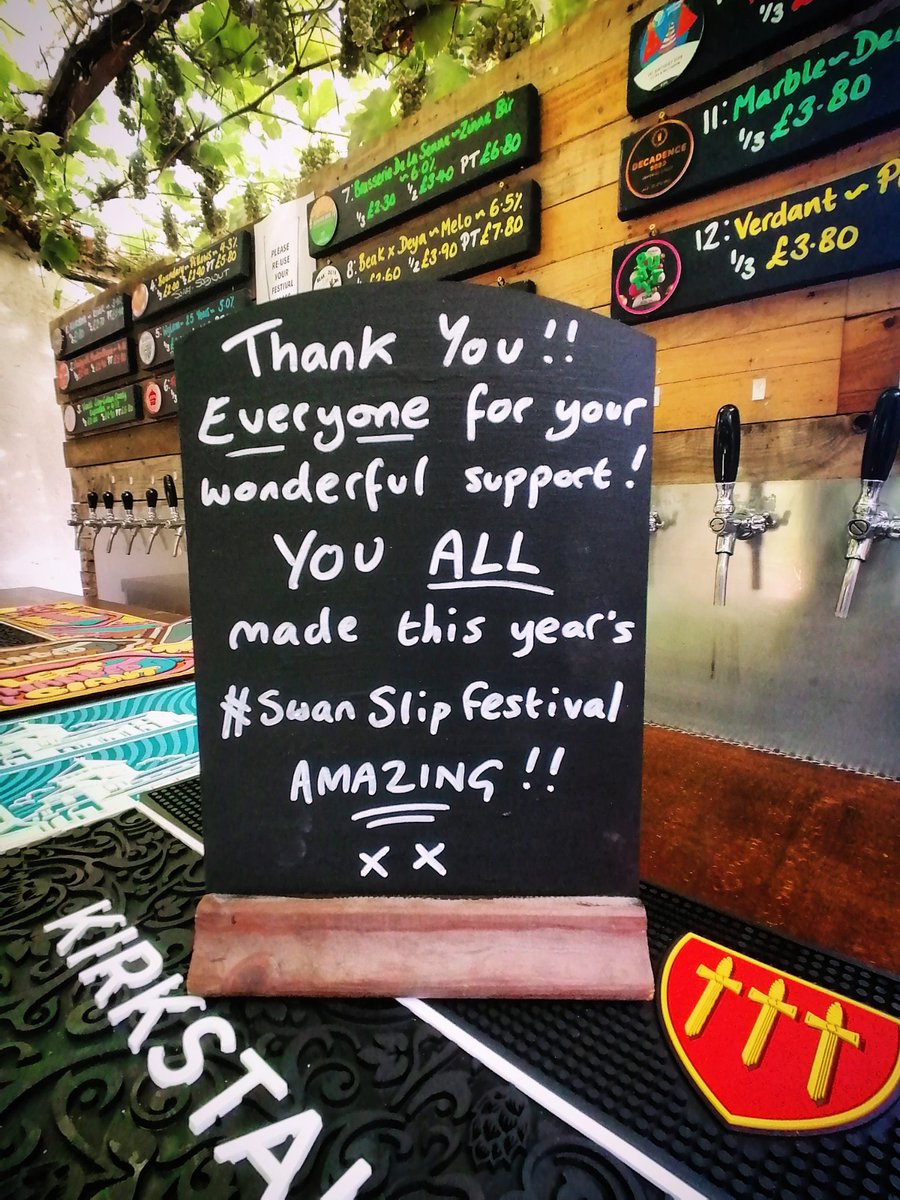 7: Brasserie De La Senne ~ Zinne Bir
~ 6.0%
1/3 £2.30 1/2 £3.40 PT £6.80
8: Beak x Deya ~ Melo ~ 6.5%
£2.60 1/2 £3.90 PT £7.80
PLEASE
RE-USE
YOUR
FESTIVAL
1/3
11: Marble ~ De
1/3 £3.80
DECADENCE
12: Verdant ~ P
1/3 £3.80
Thank You!!
Everyone for your
wonderful support!
YOU ALL
made this year's
#SwanSlipFestival
AMAZING!!
x x
KIRKSTAL